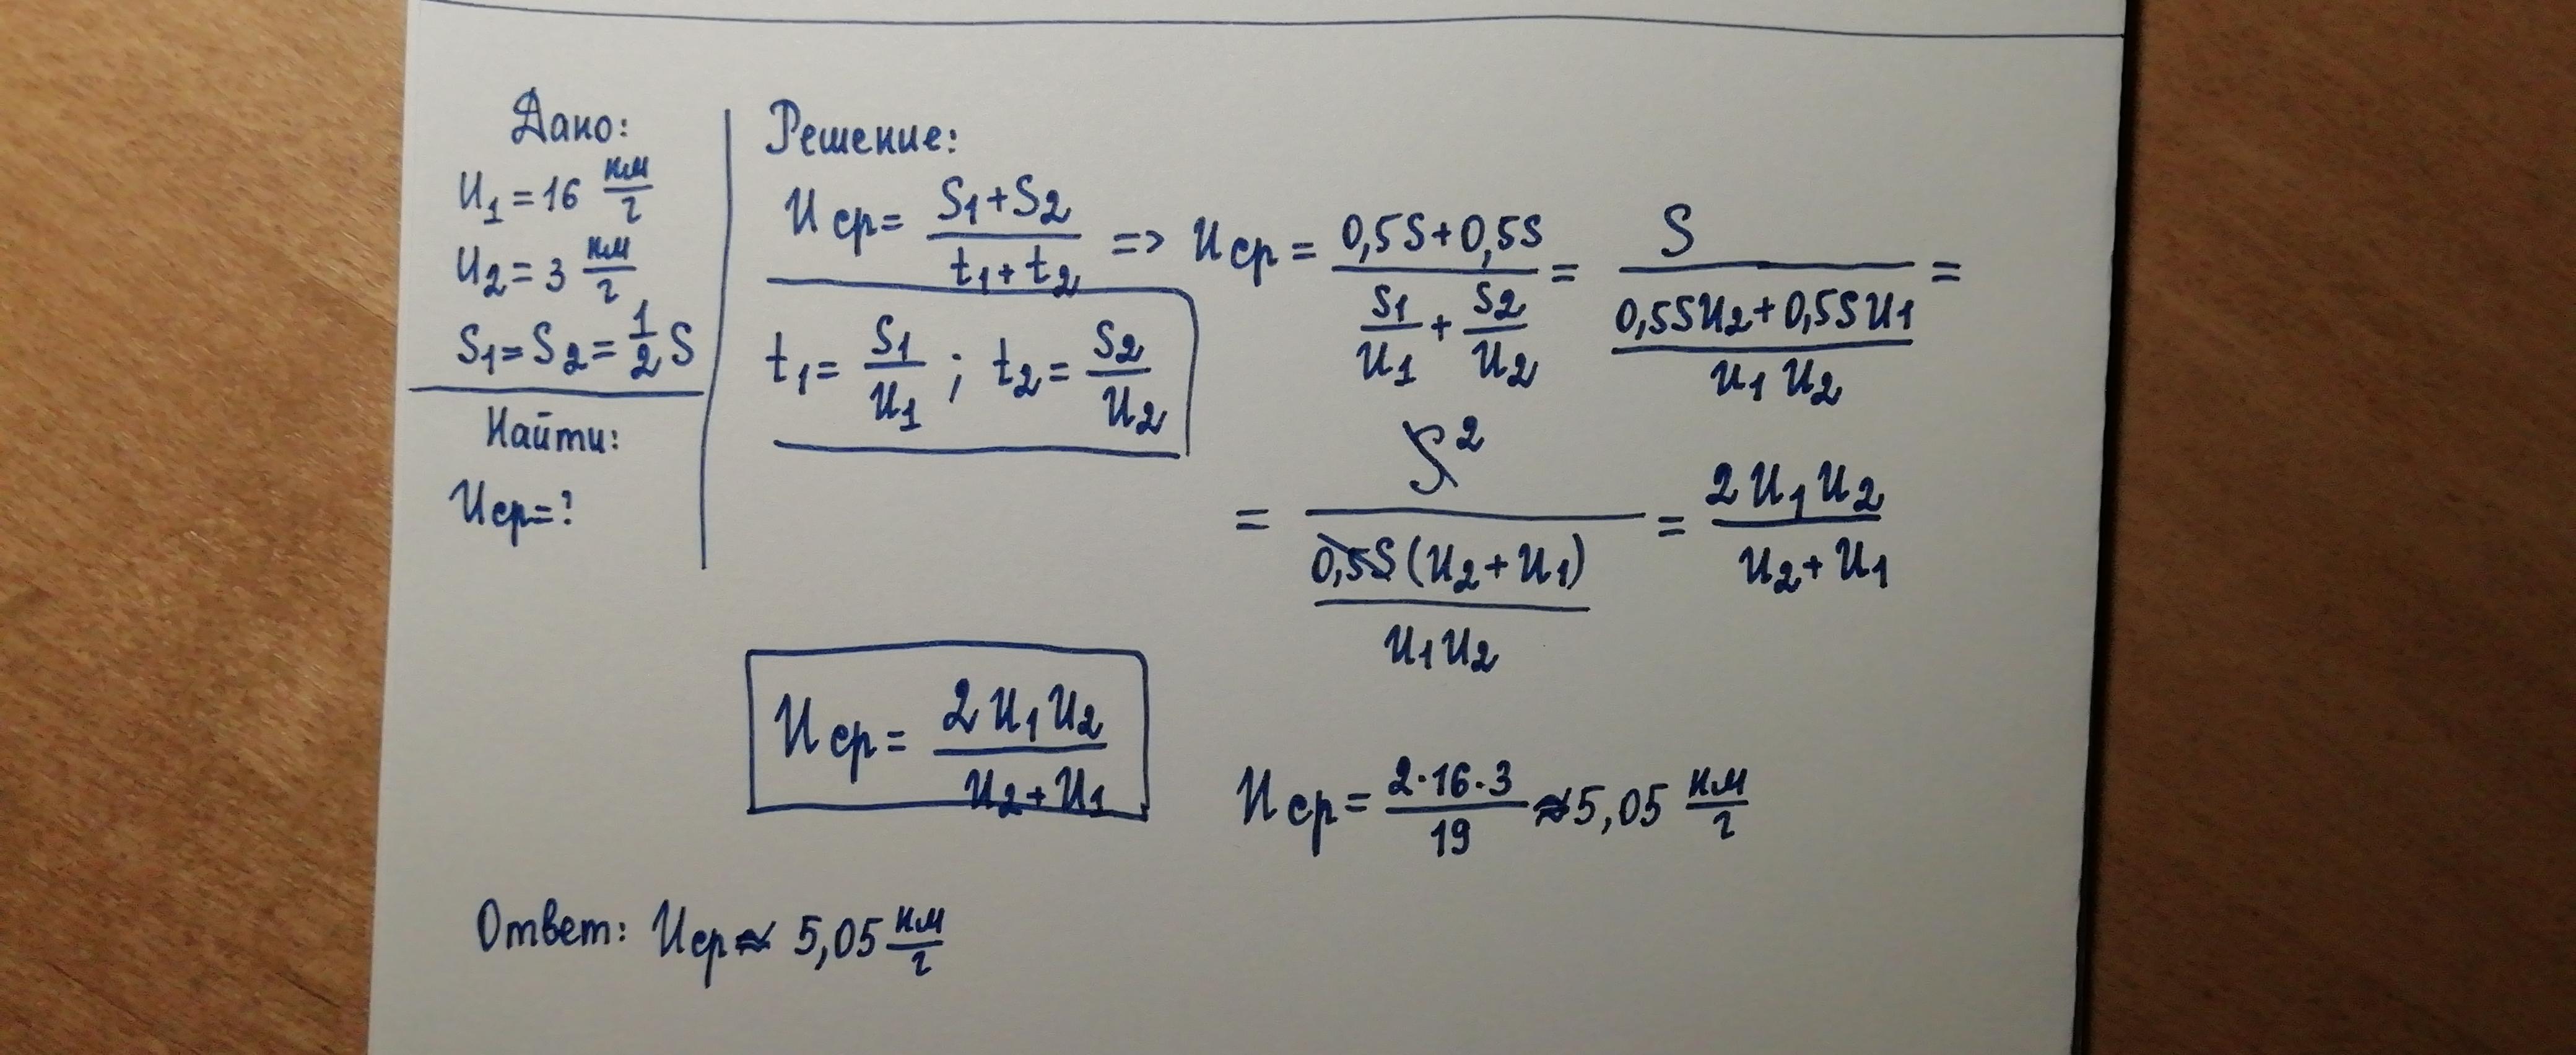 Дано:
u₁ = 16 км/г
u₂ = 3 км/г
S₁ = S₂ = 1/2 S
Найти:
uср = ?
Решение:
uср = (S₁ + S₂)/(t₁ + t₂) => uср = (0,5S + 0,5S)/(S₁/u₁ + S₂/u₂) = S/((0,5Su₂ + 0,5Su₁)/(u₁u₂)) =
t₁ = S₁/u₁ ; t₂ = S₂/u₂
= S²/((0,5S(u₂ + u₁))/(u₁u₂)) = 2u₁u₂/(u₂ + u₁)
uср = 2u₁u₂/(u₂ + u₁)
uср = (2·16·3)/19 ≈ 5,05 км/г
Ответ: uср ≈ 5,05 км/г